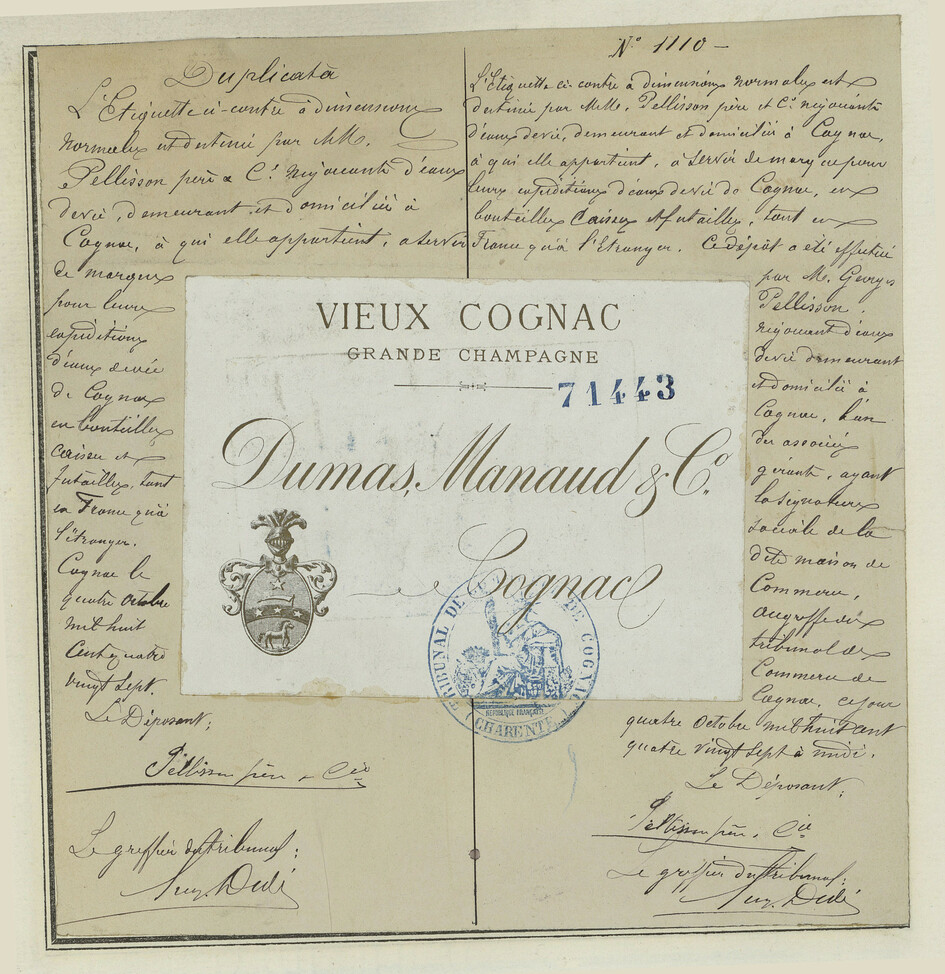 Duplicata
L'Etiquette ci-contre à dimensions
normales est destinée par MM.
Pellisson père & Cie négociants d'eaux
de vie, demeurant et domiciliés à
Cognac, à qui elle appartient, à servir
de marque
pour leurs
expéditions
d'eaux de vie
de Cognac
en bouteilles
caisses et
futailles, tant
en France qu'à
l'étranger.
Cognac le
quatre Octobre
mil huit
cent quatre
vingt sept.
Le Déposant;
Pellisson père & Cie
Le greffier du tribunal:
Dedé
N° 1110 –
L'Etiquette ci-contre à dimensions normales est
destinée par MM. Pellisson père et Cie négociants
d'eaux de vie, demeurant et domiciliés à Cognac,
à qui elle appartient, à servir de marque pour
leurs expéditions d'eaux de vie de Cognac, en
bouteilles caisses & futailles, tant en
France qu'à l'Etranger. Ce dépôt a été effectué
par Mr. Georges
Pellisson,
négociant d'eaux
de vie demeurant
et domicilié à
Cognac, l'un
des associés
gérants, ayant
la signature
sociale de la
dite maison de
Commerce,
au greffe du
tribunal de
Commerce de
Cognac, ce jour
quatre Octobre mil huit cent
quatre vingt sept à midi.
Le Déposant;
Pellisson père & Cie
Le greffier du tribunal:
Dedé
VIEUX COGNAC
GRANDE CHAMPAGNE
71443
Dumas, Manaud & Co.
Cognac
TRIBUNAL DE DE COGNAC
RÉPUBLIQUE FRANÇAISE
(CHARENTE)